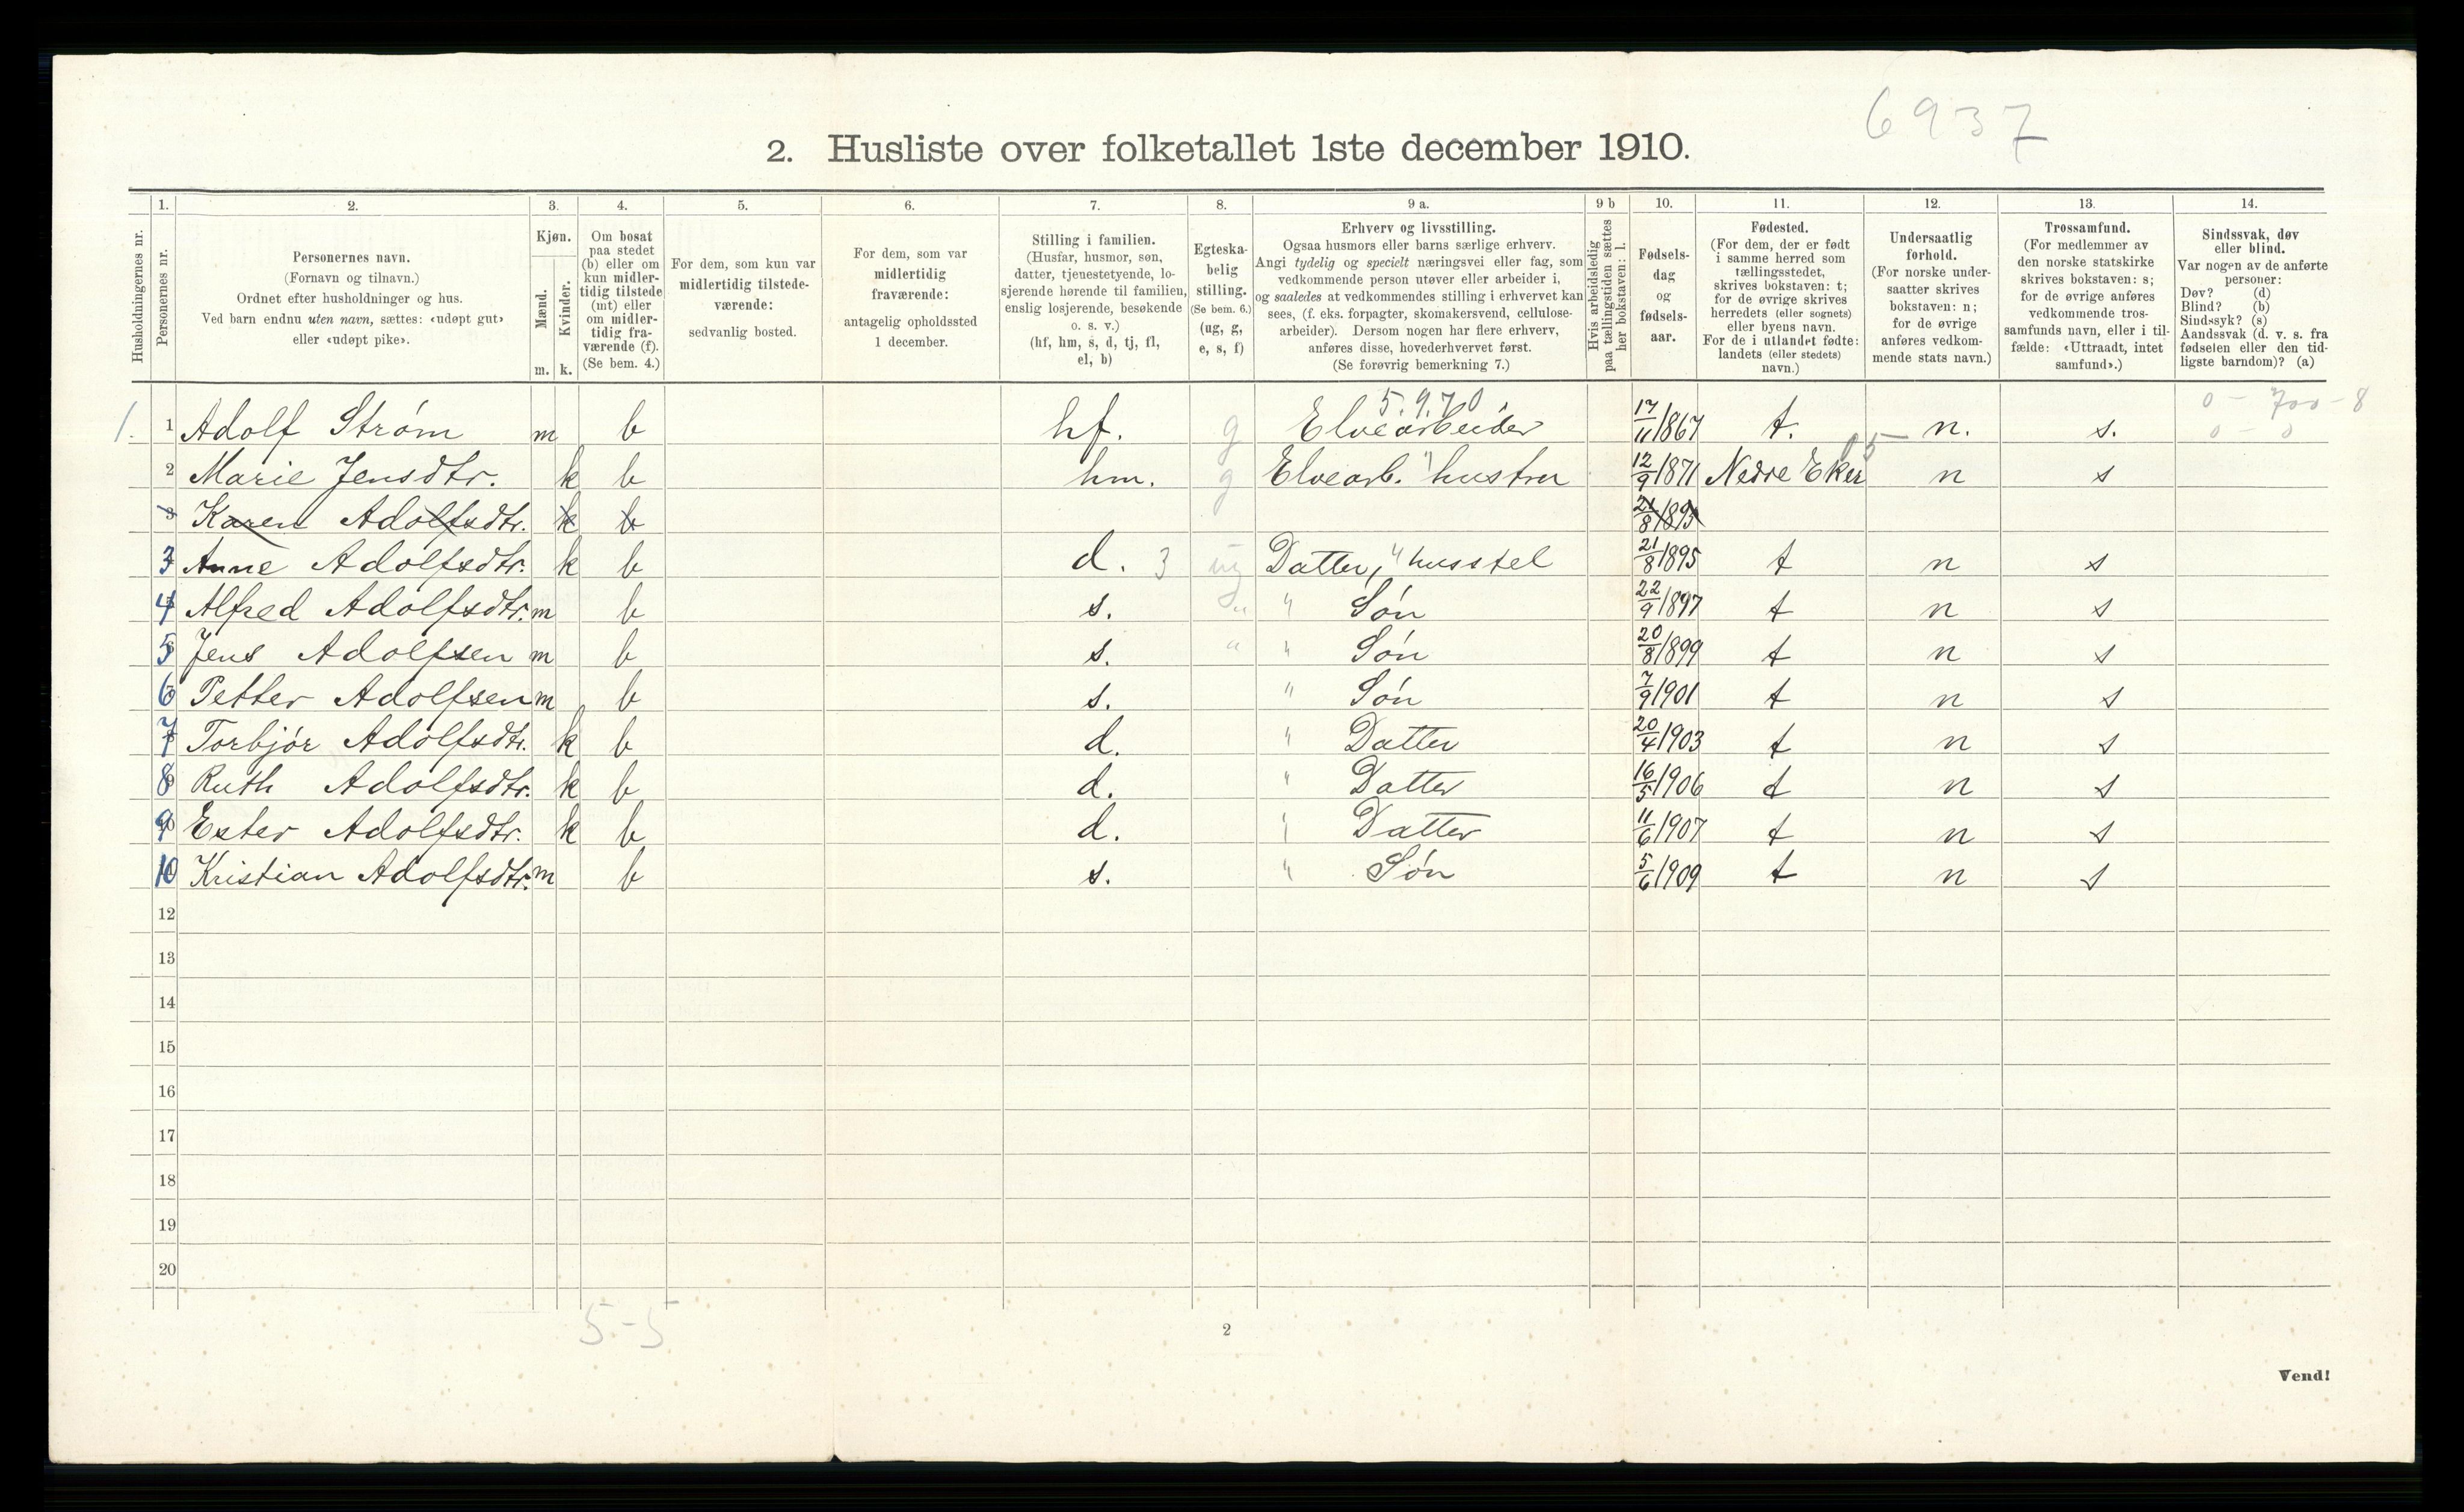 6937
2. Husliste over folketallet 1ste december 1910.
1. 2. 3. 4. 5. 6. 7. 8. 9 a. 9 b 10. 11. 12. 13. 14.
Husholdningernes nr.
Personernes nr.
Personernes navn.
(Fornavn og tilnavn.)
Ordnet efter husholdninger og hus.
Ved barn endnu uten navn, sættes: «udøpt gut»
eller «udøpt pike».
Kjøn.
Mænd.
Kvinder.
m. k.
Om bosat
paa stedet
(b) eller om
kun midler-
tidig tilstede
(mt) eller
om midler-
tidig fra-
værende (f).
(Se bem. 4.)
For dem, som kun var
midlertidig tilstede-
værende:
sedvanlig bosted.
For dem, som var
midlertidig
fraværende:
antagelig opholdssted
1 december.
Stilling i familien.
(Husfar, husmor, søn,
datter, tjenestetyende, lo-
sjerende hørende til familien,
enslig losjerende, besøkende
o. s. v.)
(hf, hm, s, d, tj, fl,
el, b)
Egteska-
belig
stilling.
(Se bem. 6.)
(ug, g,
e, s, f)
Erhverv og livsstilling.
Ogsaa husmors eller barns særlige erhverv.
Angi tydelig og specielt næringsvei eller fag, som
vedkommende person utøver eller arbeider i,
og saaledes at vedkommendes stilling i erhvervet kan
sees, (f. eks. forpagter, skomakersvend, cellulose-
arbeider). Dersom nogen har flere erhverv,
anføres disse, hovederhvervet først.
(Se forøvrig bemerkning 7.)
Hvis arbeidsledig
paa tællingstiden sættes
her bokstaven: l.
Fødsels-
dag
og
fødsels-
aar.
Fødested.
(For dem, der er født
i samme herred som
tællingsstedet,
skrives bokstaven: t;
for de øvrige skrives
herredets (eller sognets)
eller byens navn.
For de i utlandet fødte:
landets (eller stedets)
navn.)
Undersaatlig
forhold.
(For norske under-
saatter skrives
bokstaven: n;
for de øvrige
anføres vedkom-
mende stats navn.)
Trossamfund.
(For medlemmer av
den norske statskirke
skrives bokstaven: s;
for de øvrige anføres
vedkommende tros-
samfunds navn, eller i til-
fælde: «Uttraadt, intet
samfund».)
Sindssvak, døv
eller blind.
Var nogen av de anførte
personer:
Døv? (d)
Blind? (b)
Sindssyk? (s)
Aandssvak (d. v. s. fra
fødselen eller den tid-
ligste barndom)? (a)
5.9.70 0 - 700 - 8
1. 1 Adolf Strøm m b hf. g Elvearbeider 17/11 1867 t. n. s. 0 - 0
2 Marie Jensdtr. k b hm. g Elvearb. " hustru 12/9 1871 Nedre Eker 05 n s
3 Karen Adolfsdtr. k b 21/8 1895
3 Anne Adolfsdtr. k b d. 3 ug Datter, " husstel 21/8 1895 t n s
4 Alfred Adolfsdtr. m b s. " " Søn 22/9 1897 t n s
5 Jens Adolfsen m b s. " " Søn 20/8 1899 t n s
6 Petter Adolfsen m b s. " Søn 7/9 1901 t n s
7 Torbjør Adolfsdtr. k b d. " Datter 20/4 1903 t n s
8 Ruth Adolfsdtr. k b d. " Datter 16/5 1906 t n s
9 Ester Adolfsdtr. k b d. " Datter 11/6 1907 t n s
10 Kristian Adolfsdtr. m b s. " Søn 5/6 1909 t n s
12
13
14
15
16
17
18
19
20
5-5
2
Vend!